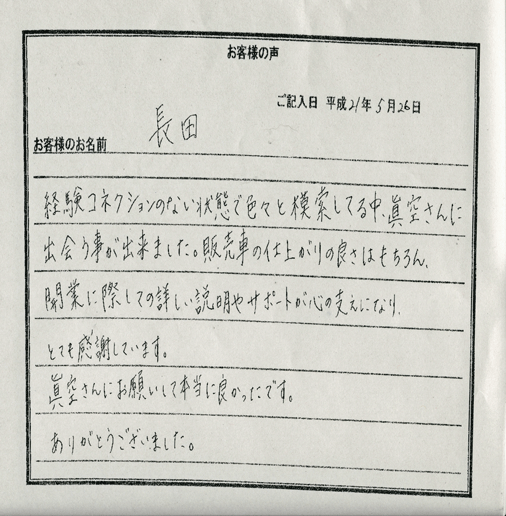 お客様の声
ご記入日 平成21年5月26日
お客様のお名前 長田
経験コネクションのない状態で色々と模索してる中、眞空さんに
出会う事が出来ました。販売車の仕上がりの良さはもちろん、
開業に際しての詳しい説明やサポートが心の支えになり、
とても感謝しています。
眞空さんにお願いして本当に良かったです。
ありがとうございました。